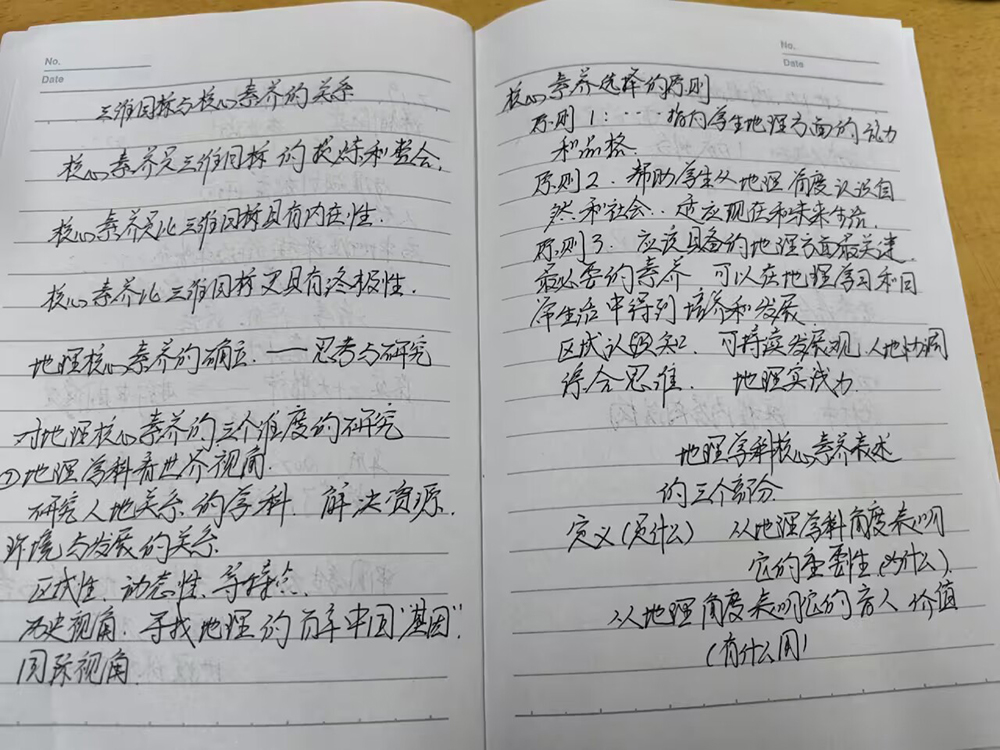 No.
Date
三维目标与核心素养的关系
核心素养是三维目标的提炼和整合,
核心素养是比三维目标具有内在性.
核心素养比三维目标又具有终极性.
地理核心素养的确立.——思考与研究
对地理核心素养的三个维度的研究
①地理学科看世界视角.
研究人地关系的学科. 解决资源.
环境与发展的关系.
区域性、动态性、等特点.
历史视角. 寻找地理的百年中国"基因".
国际视角.
No.
Date
核心素养选择的原则
原则1:…… 指向学生地理方面的能力
和品格.
原则2. 帮助学生从地理角度认识自
然和社会.. 适应现在和未来生活.
原则3. 应该具备的地理方面最关键.
最必要的素养 可以在地理学习和日
常生活中得到培养和发展.
区域认知. 可持续发展观. 人地协调
综合思维. 地理实践力.
地理学科核心素养表述
的三个部份.
定义(是什么) 从地理学科角度表明
它的重要性(为什么).
从地理角度表明它的育人价值
(有什么用)